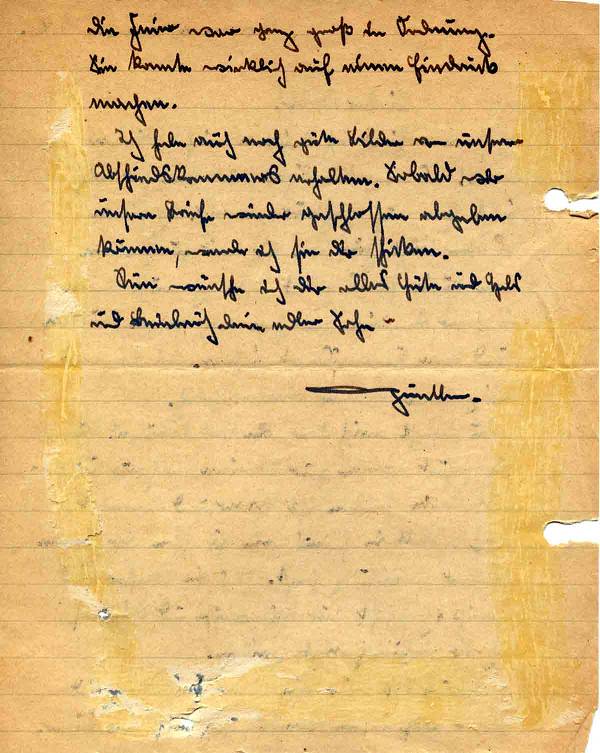 die Feier war ganz groß in Ordnung.
Sie konnte wirklich auf einen Eindruck
machen.
Ich habe auch noch gute Bilder von unserem
Abschiedskommers erhalten. Sobald wir
unsere Briefe wieder geschlossen abgeben
können, werde ich sie dir schicken.
Nun wünsche ich dir alles Gute und Hals
und Beinbruch dein edler Sohn
Günther.